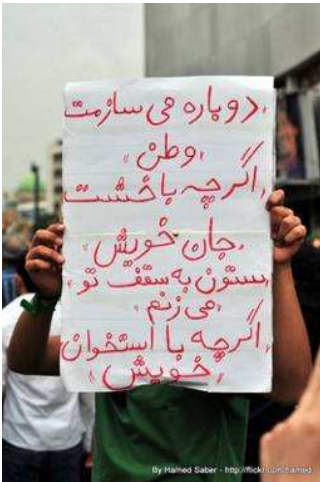 دوباره می سازمت
وطن
اگرچه با خشت
جان خویش
ستون به سقف تو
می زنم
اگرچه با استخوان
خویش
By Hamed Saber - http://flickr.com/hamed